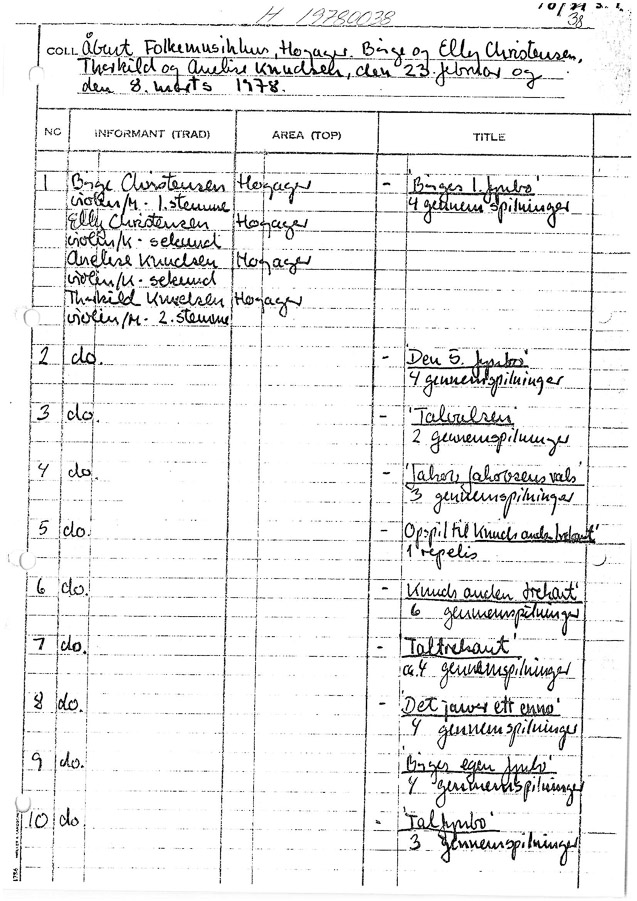 H 19780038
38
COLL Åbent Folkemusikhus, Hogager. Birge og Elly Christensen,
Thorkild og Anelise Knudsen, den 23. februar og
den 8. marts 1978.
NO INFORMANT (TRAD) AREA (TOP) TITLE
1 Birge Christensen Hogager - 'Birges 1. fynbo'
violin/M - 1. stemme 4 gennemspilninger
Elly Christensen Hogager
violin/K - sekund
Anelise Knudsen Hogager
violin/K - sekund
Thorkild Knudsen Hogager
violin/M - 2. stemme
2 do. - 'Den 5. fynbo'
4 gennemspilninger
3 do. - 'Talvalsen'
2 gennemspilninger
4 do. - 'Jakob Jakobsens vals'
3 gennemspilninger
5 do. - Opspil til Knuds anden trekant'
1 repetis
6 do. - Knuds anden trekant'
6 gennemspilninger
7 do. - 'Taltrekant'
ca. 4 gennemspilninger
8 do. - 'Det jawer ett enno'
4 gennemspilninger
9 do. - 'Birges egen fynbo'
4 gennemspilninger
10 do. - 'Talfynbo'
3 gennemspilninger